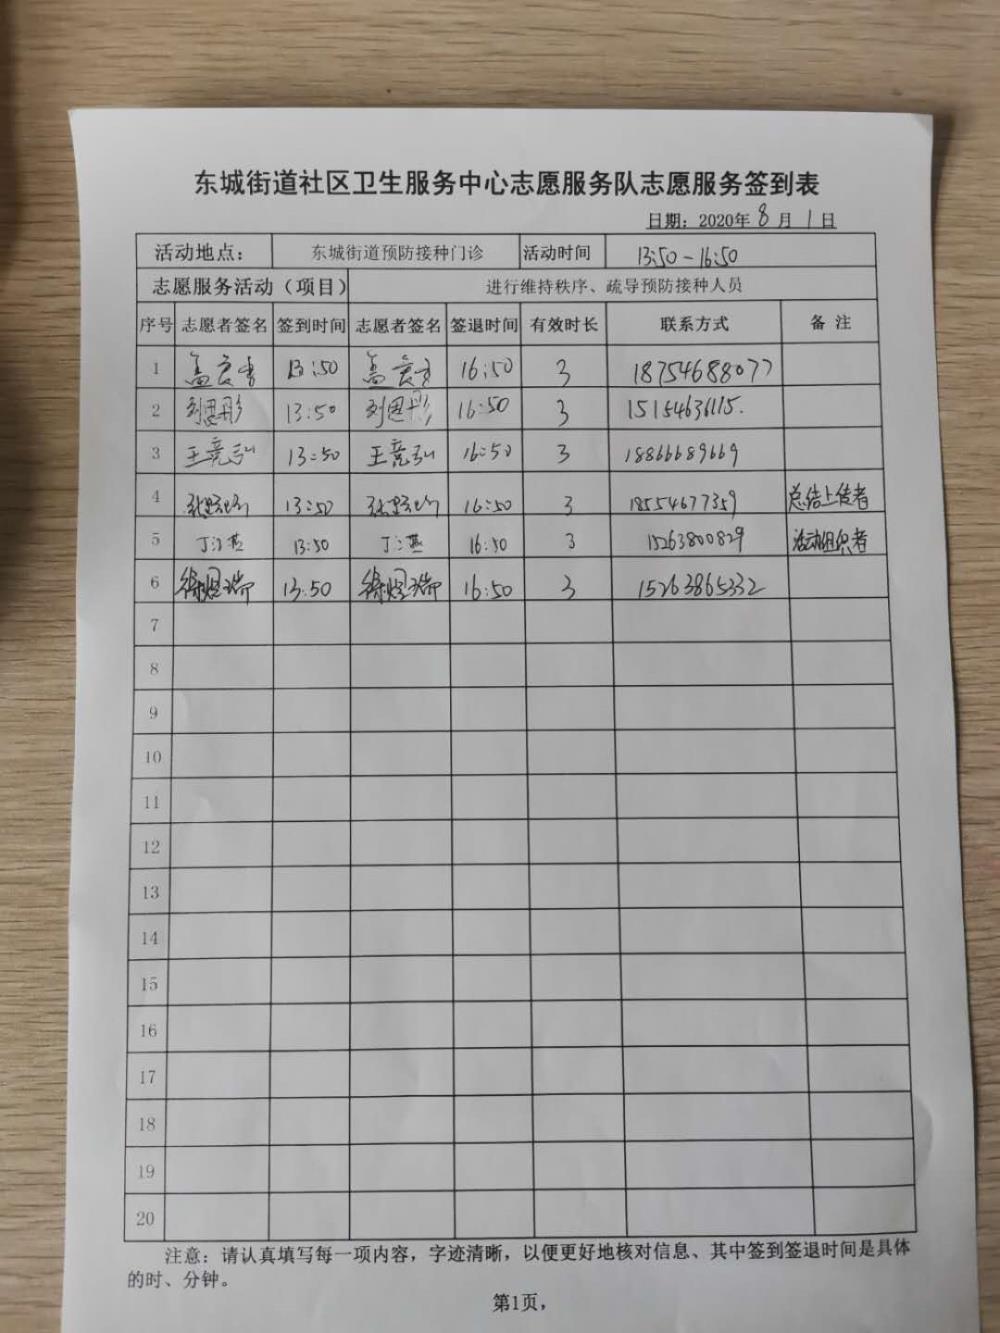 东城街道社区卫生服务中心志愿服务队志愿服务签到表
日期：2020年 8 月 1 日
活动地点： 东城街道预防接种门诊 活动时间 13:50-16:50
志愿服务活动（项目） 进行维持秩序、疏导预防接种人员
序号 志愿者签名 签到时间 志愿者签名 签退时间 有效时长 联系方式 备 注
1 13:50 16:50 3 18754688077
2 刘思彤 13:50 刘思彤 16:50 3 15154636115.
3 王竞弘 13:50 王竞弘 16:50 3 18866689669
4 13:50 16:50 3 18554677359 总结上传者
5 丁江燕 13:50 丁江燕 16:50 3 15263800829 活动组织者
6 徐煜瑞 13:50 徐煜瑞 16:50 3 15263865332
7
8
9
10
11
12
13
14
15
16
17
18
19
20
注意：请认真填写每一项内容，字迹清晰，以便更好地核对信息、其中签到签退时间是具体
的时、分钟。
第1页，